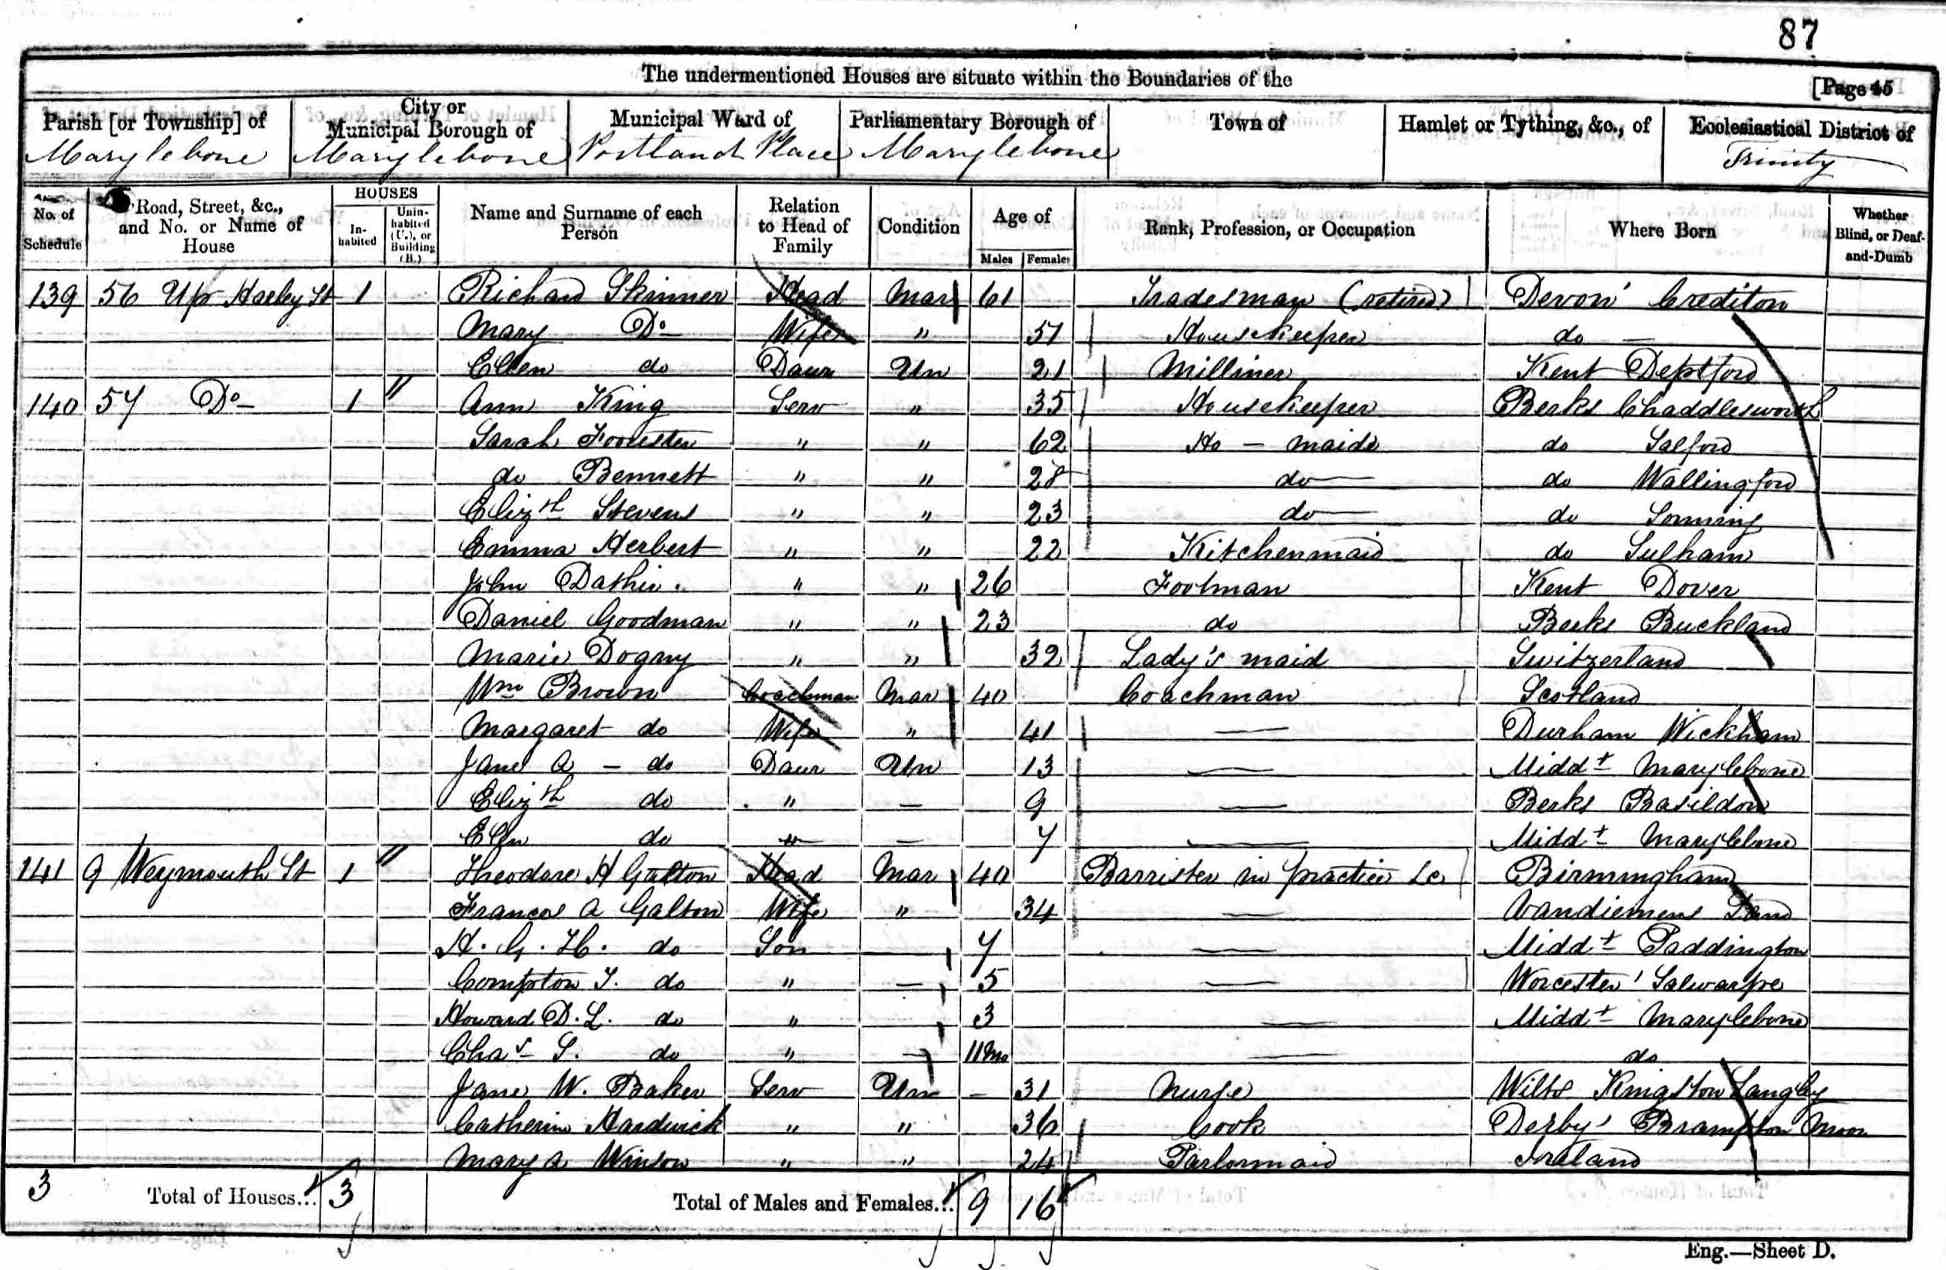 87
The undermentioned Houses are situate within the Boundaries of the
[Page 45
Parish [or Township] of City or Municipal Borough of Municipal Ward of Parliamentary Borough of Town of Hamlet or Tything, &c., of Ecclesiastical District of
Marylebone Marylebone Portland Place Marylebone Trinity
No. of Schedule Road, Street, &c., and No. or Name of House HOUSES Inhabited Uninhabited (U.), or Building (B.) Name and Surname of each Person Relation to Head of Family Condition Age of Males Females Rank, Profession, or Occupation Where Born Whether Blind, or Deaf-and-Dumb
139 56 Upr Harley St 1 Richard Skinner Head Mar 61 Tradesman (retired) Devon' Crediton
Mary Do Wife " 57 Housekeeper do —
Ellen do Daur Un 21 Milliner Kent Deptford
140 57 Do 1 Ann King Serv " 35 Housekeeper Berks Chaddlesworth
Sarah " " 62 Ho - maid do Salford
do Bennett " " 28 do do Wallingford
Elizth Stevens " " 23 do do Sonning
Emma Herbert " " 22 Kitchenmaid do Sulham
John " " 26 Footman Kent Dover
Daniel Goodman " " 23 do Berks Buckland
Marie Dogny " " 32 Lady's maid Switzerland
Wm Brown Coachman Mar 40 Coachman Scotland
Margaret do Wife " 41 — Durham Wickham
Jane A - do Daur Un 13 — Middt Marylebone
Elizth do " — 9 — Berks Basildon
Ellen do " — 7 — Middt Marylebone
141 9 Weymouth St 1 Theodore H Galton Head Mar 40 Barrister in practice &c Birmingham
Frances A Galton Wife " 34 — Vandiemens Land
H. G. H. do Son 7 — Middt Paddington
Compton T. do " — 5 — Worcester' Salwarpe
Howard D. L. do " 3 — Middt Marylebone
Chas S. do " — 11 Mo — do
Jane W. Baker Serv Un - 31 Nurse Wilts Kington Langley
Catherine Hardwick " " 36 Cook Derby' Brampton Moor
Mary A Winson " " 24 Parlormaid Ireland
3 Total of Houses... 3 Total of Males and Females... 9 16
Eng.—Sheet D.